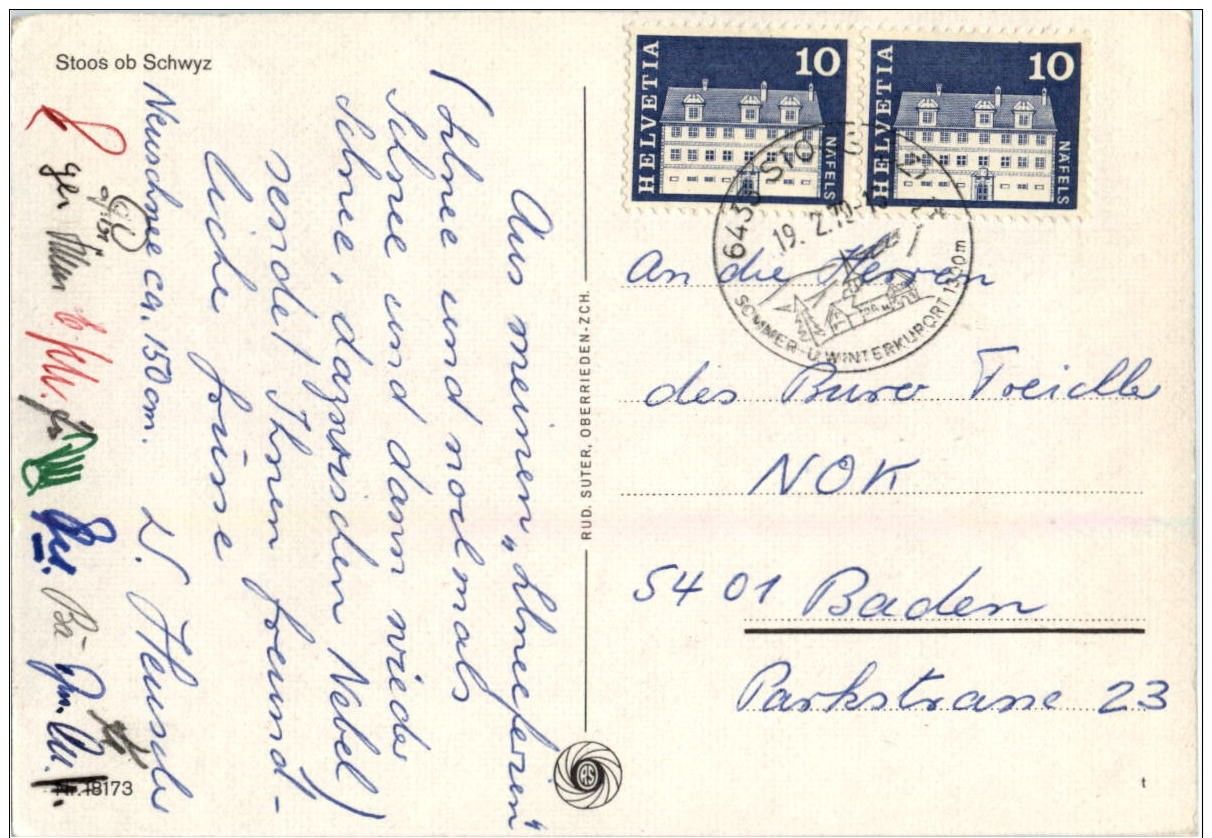 Stoos ob Schwyz
Aus meinen „Schneeferien"
(Schnee und nochmals
Schnee und dann wieder
Schnee, dazwischen Nebel)
sendet Ihnen freund-
liche Grüsse
Neuschnee ca. 150cm.
Nr. 18173
RUD. SUTER, OBERRIEDEN-ZCH.
RS
HELVETIA 10 NÄFELS
HELVETIA 10 NÄFELS
6433 STOOS
19.2.70
SOMMER- U. WINTERKURORT 1300m
An die Herren
des Buro
NOK
5401 Baden
Parkstrasse 23
t